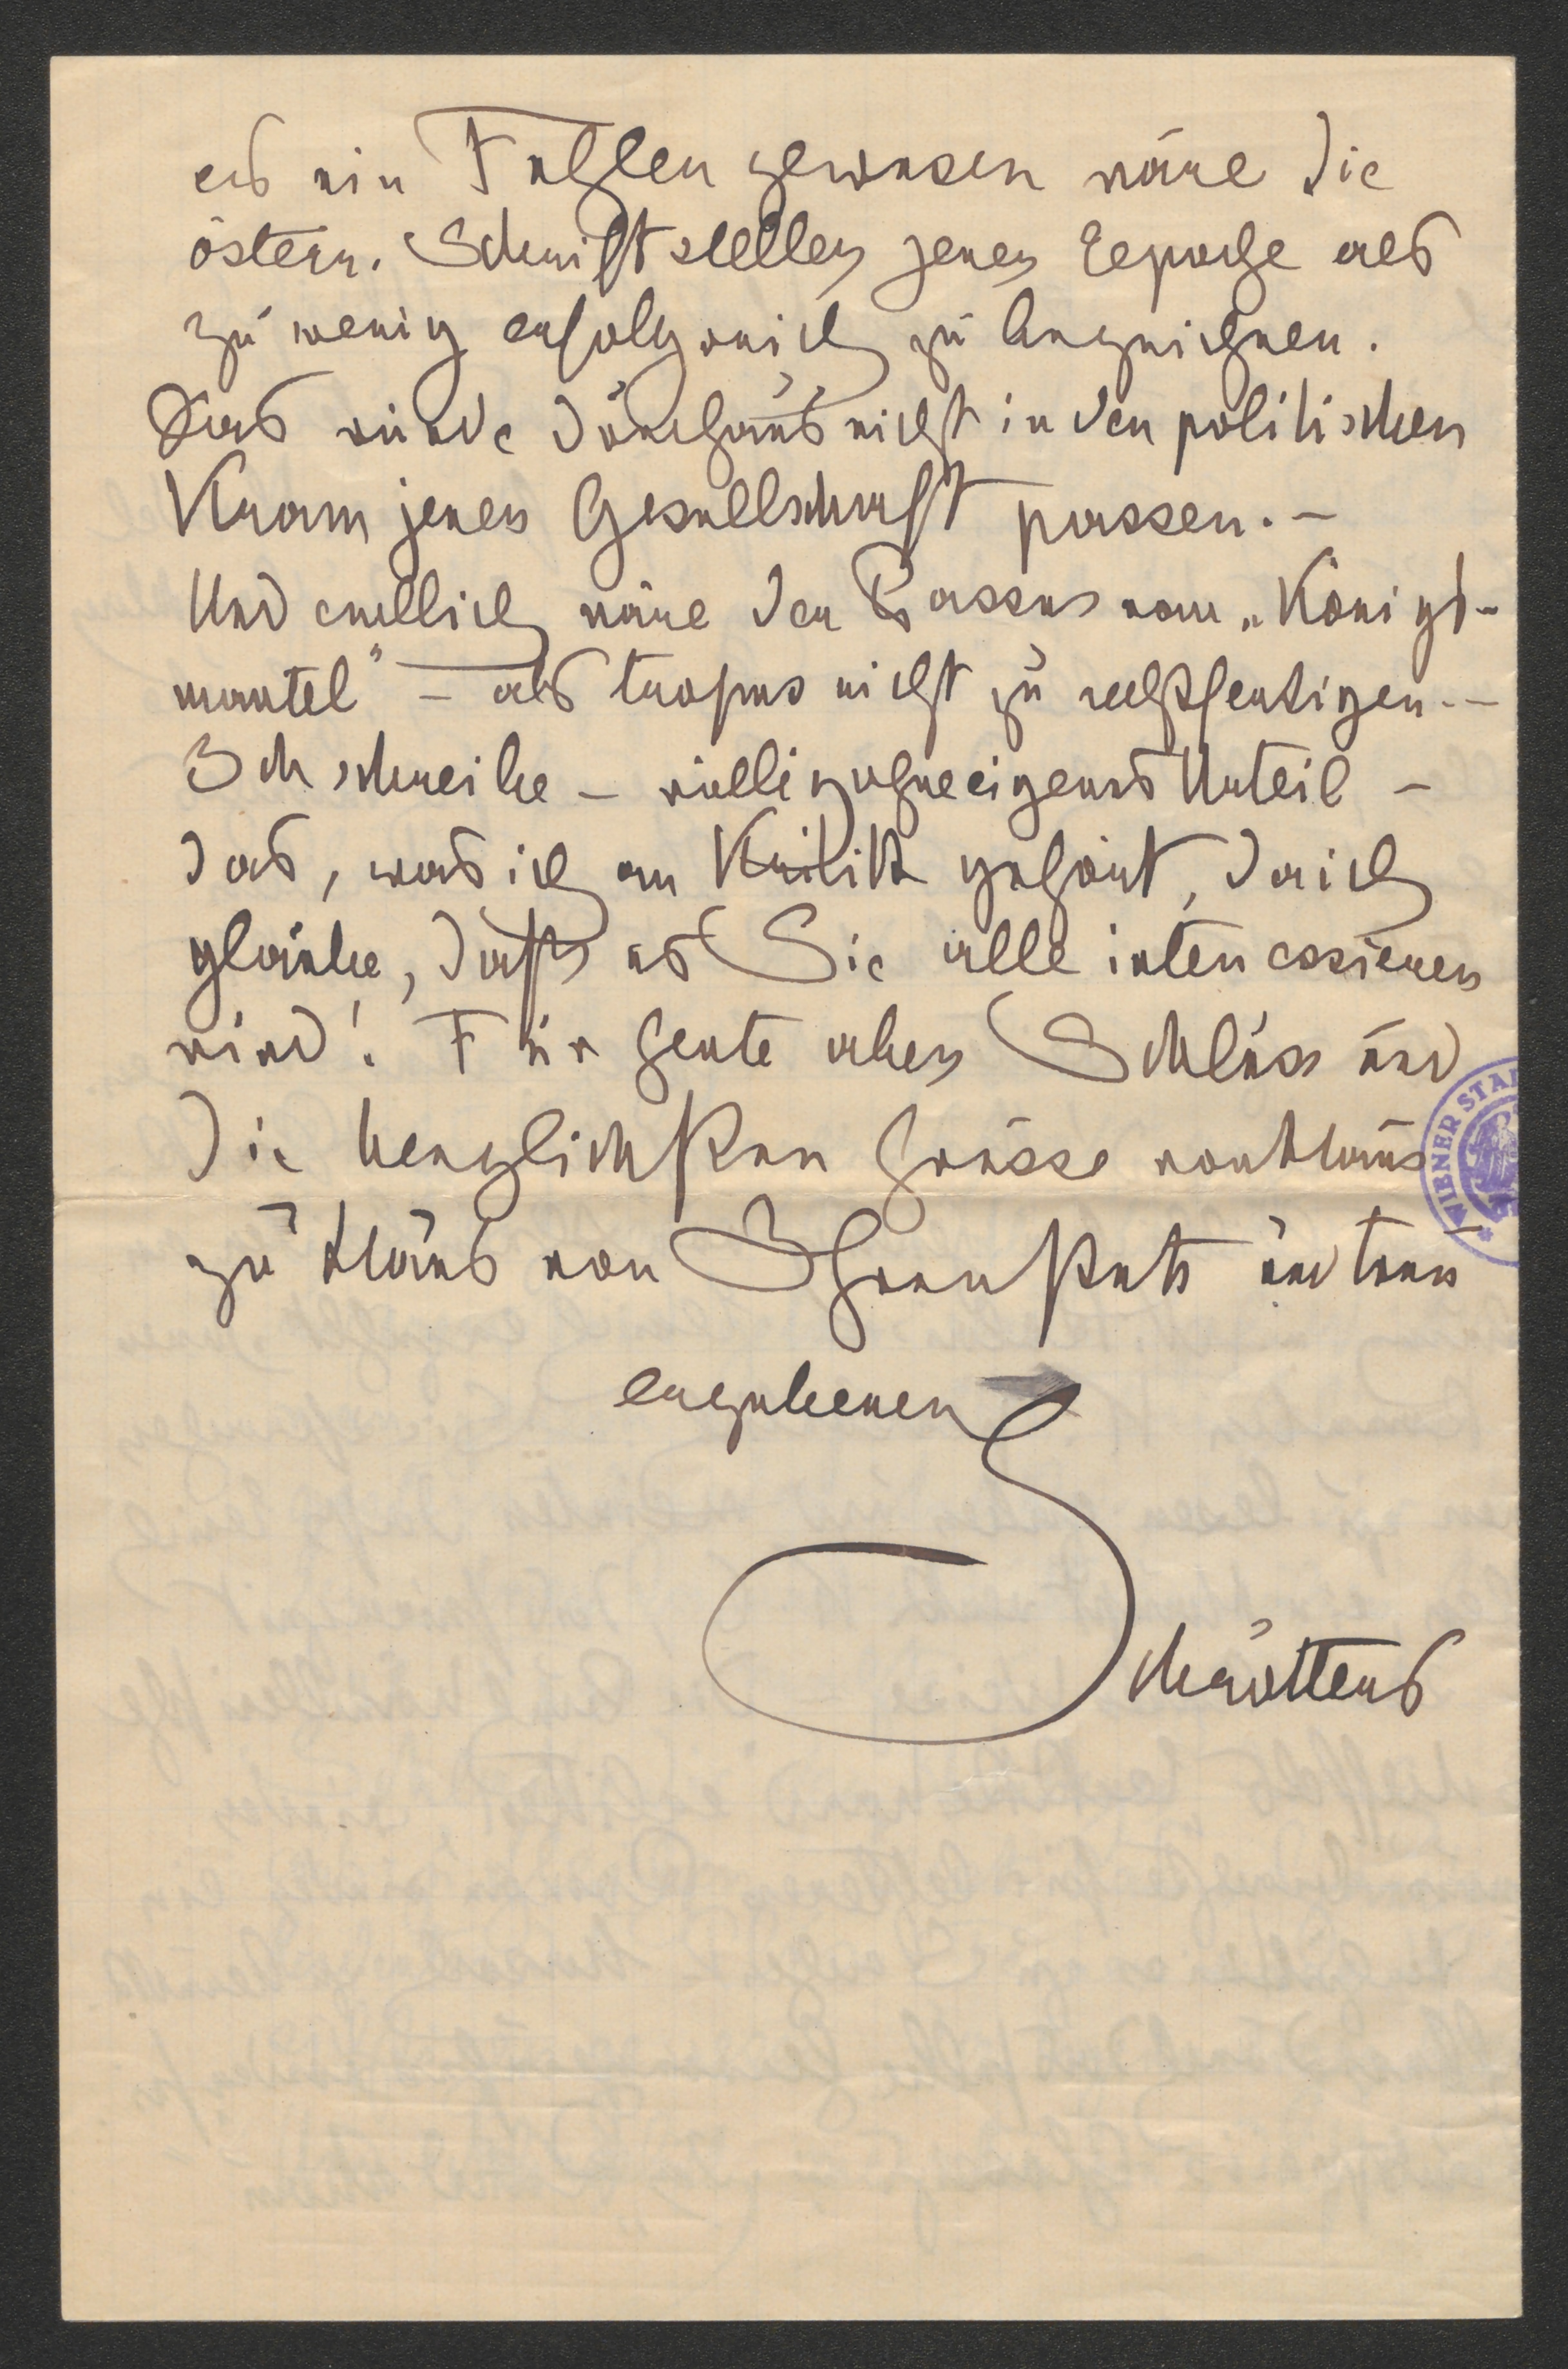 es ein Fehler gewesen wäre die
österr. Schriftsteller jener Eepoche als
zu wenig erfolgreich zu bezeichnen.
Das würde durchaus nicht in den politischen
Kram jener Gesellschaft passen. –
Und endlich wäre der Passus vom „Königs-
mantel" – als tropus nicht zu rechtfertigen. –
Ich schreibe – völlig ohne eigenes Urteil –
das, was ich an Kritik gehört, da ich
glaube, dass es Sie alle interessieren
wird! Für heute aber Schluss und
die herzlichsten Grüsse von Haus
zu Haus von Ihren stets und treu
ergebenen
Schrötters
WIENER STA